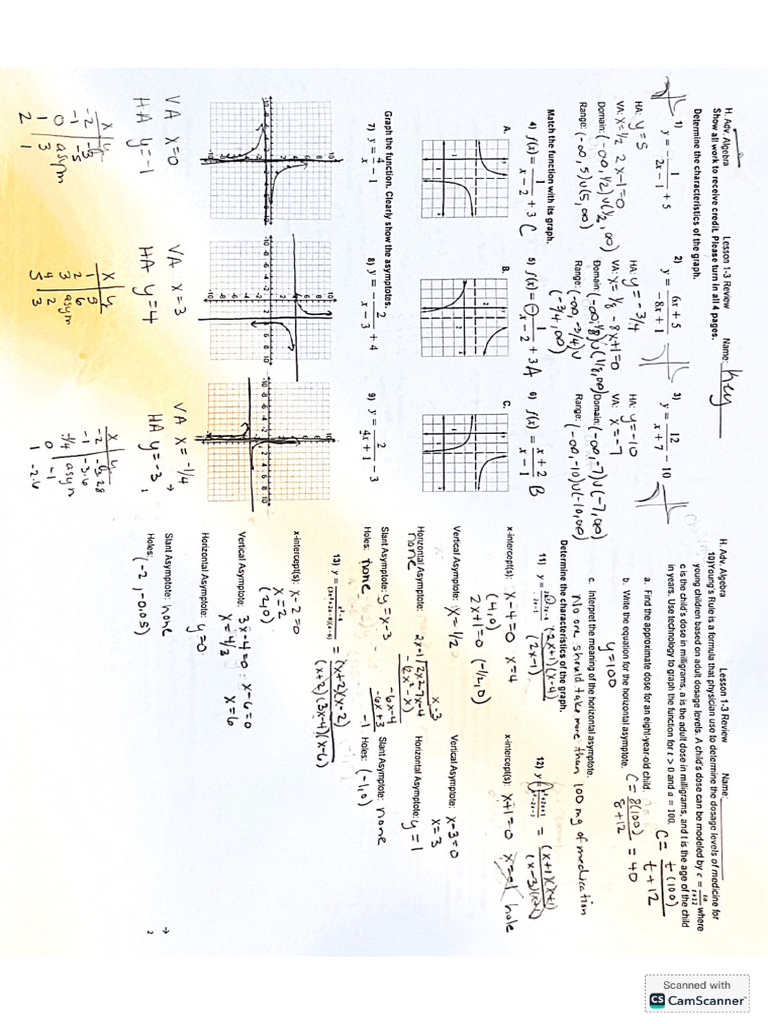 H. Adv. Algebra Lesson 1-3 Review Name: Key
Show all work to receive credit. Please turn in all 4 pages.
Determine the characteristics of the graph.
1) y = - 1/(2x - 1) + 5
HA: y = 5
VA: x = 1/2 2x-1=0
Domain: (-∞, 1/2) ∪ (1/2, ∞)
Range: (-∞, 5) ∪ (5, ∞)
2) y = (6x + 5)/(-8x + 1)
HA: y = -3/4
VA: x = 1/8 -8x+1=0
Domain: (-∞, 1/8) ∪ (1/8, ∞)
Range: (-∞, -3/4) ∪
(-3/4, ∞)
3) y = 12/(x + 7) - 10
HA: y = -10
VA: x = -7
Domain: (-∞, -7) ∪ (-7, ∞)
Range: (-∞, -10) ∪ (-10, ∞)
Match the function with its graph.
4) f(x) = 1/(x - 2) + 3 C
5) f(x) = - 1/(x - 2) + 3 A
6) f(x) = (x + 2)/(x - 1) B
A. B. C.
Graph the function. Clearly show the asymptotes.
7) y = 1/x - 1
8) y = - 2/(x - 3) + 4
9) y = 2/(4x + 1) - 3
VA x=0
HA y=-1
VA x=3
HA y=4
VA x=-1/4
HA y=-3
x y
-1
0 asym
1
2
x y
1 5
2 6
3 asym
4 2
5 3
x y
-2 -3.28
-1 -3.6
-1/4 asym
0 -1
1 -2.6
H. Adv. Algebra Lesson 1-3 Review Name:
10) Young's Rule is a formula that physician use to determine the dosage levels of medicine for
young children based on adult dosage levels. A child's dose can be modeled by c = ta/(t+12) where
c is the child's dose in milligrams, a is the adult dose in milligrams, and t is the age of the child
in years. Use technology to graph the function for t > 0 and a = 100.
c = t(100)/(t+12)
a. Find the approximate dose for an eight-year-old child.
c = 8(100)/(8+12) = 40
b. Write the equation for the horizontal asymptote.
y=100
c. Interpret the meaning of the horizontal asymptote.
No one should take more than 100 mg of medication
Determine the characteristics of the graph.
11) y = (2x+1)(x-4)/(2x-1)
x-intercept(s): x-4=0 x=4
(4,0)
2x+1=0 (-1/2,0)
Vertical Asymptote: x=1/2
Horizontal Asymptote:
none
Slant Asymptote: y=x-3
Holes: none
x-3
2x-1 2x²-7x-4
-(2x²-x)
-6x-4
-6x+3
12) = (x+1)(x+1)/(x-3)(x+1)
x-intercept(s): x+1=0 x=-1 hole
Vertical Asymptote: x-3=0
x=3
Horizontal Asymptote: y=1
Slant Asymptote: none
Holes: (-1,0)
13) y = (x²-4)/((3x²+2x-8)(x-6)) = (x+2)(x-2)/(x+2)(3x-4)(x-6)
x-intercept(s): x-2=0
x=2
Vertical Asymptote: 3x-4=0 x-6=0
x=4/3 x=6
Horizontal Asymptote: y=0
Slant Asymptote: none
Holes: (-2, -0.05)
2
Scanned with
CS CamScanner